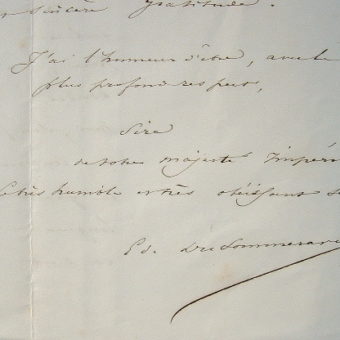 sincère gratitude.
J'ai l'honneur d'être, avec le
plus profond respect,
Sire
de votre majesté Impéri
le très humble et très obéissant s
Ed. Du Sommerard